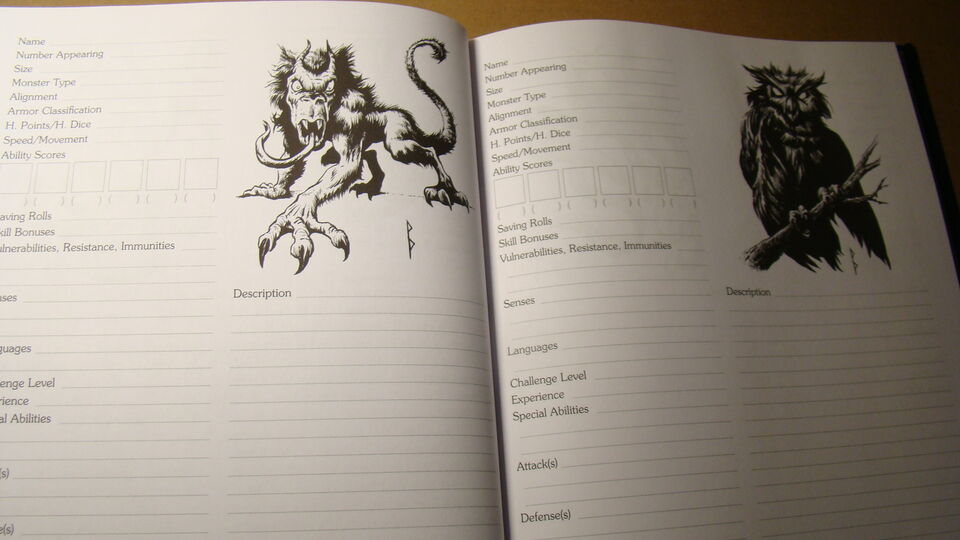 Name
Number Appearing
Size
Monster Type
Alignment
Armor Classification
H. Points/H. Dice
Speed/Movement
Ability Scores
) ( ) ( ) ( ) ( ) ( )
aving Rolls
kill Bonuses
ulnerabilities, Resistance, Immunities
nses
guages
enge Level
rience
al Abilities
(s)
e(s)
Description
Name
Number Appearing
Size
Monster Type
Alignment
Armor Classification
H. Points/H. Dice
Speed/Movement
Ability Scores
( ) ( ) ( ) ( ) ( ) ( )
Saving Rolls
Skill Bonuses
Vulnerabilities, Resistance, Immunities
Senses
Languages
Challenge Level
Experience
Special Abilities
Attack(s)
Defense(s)
Description